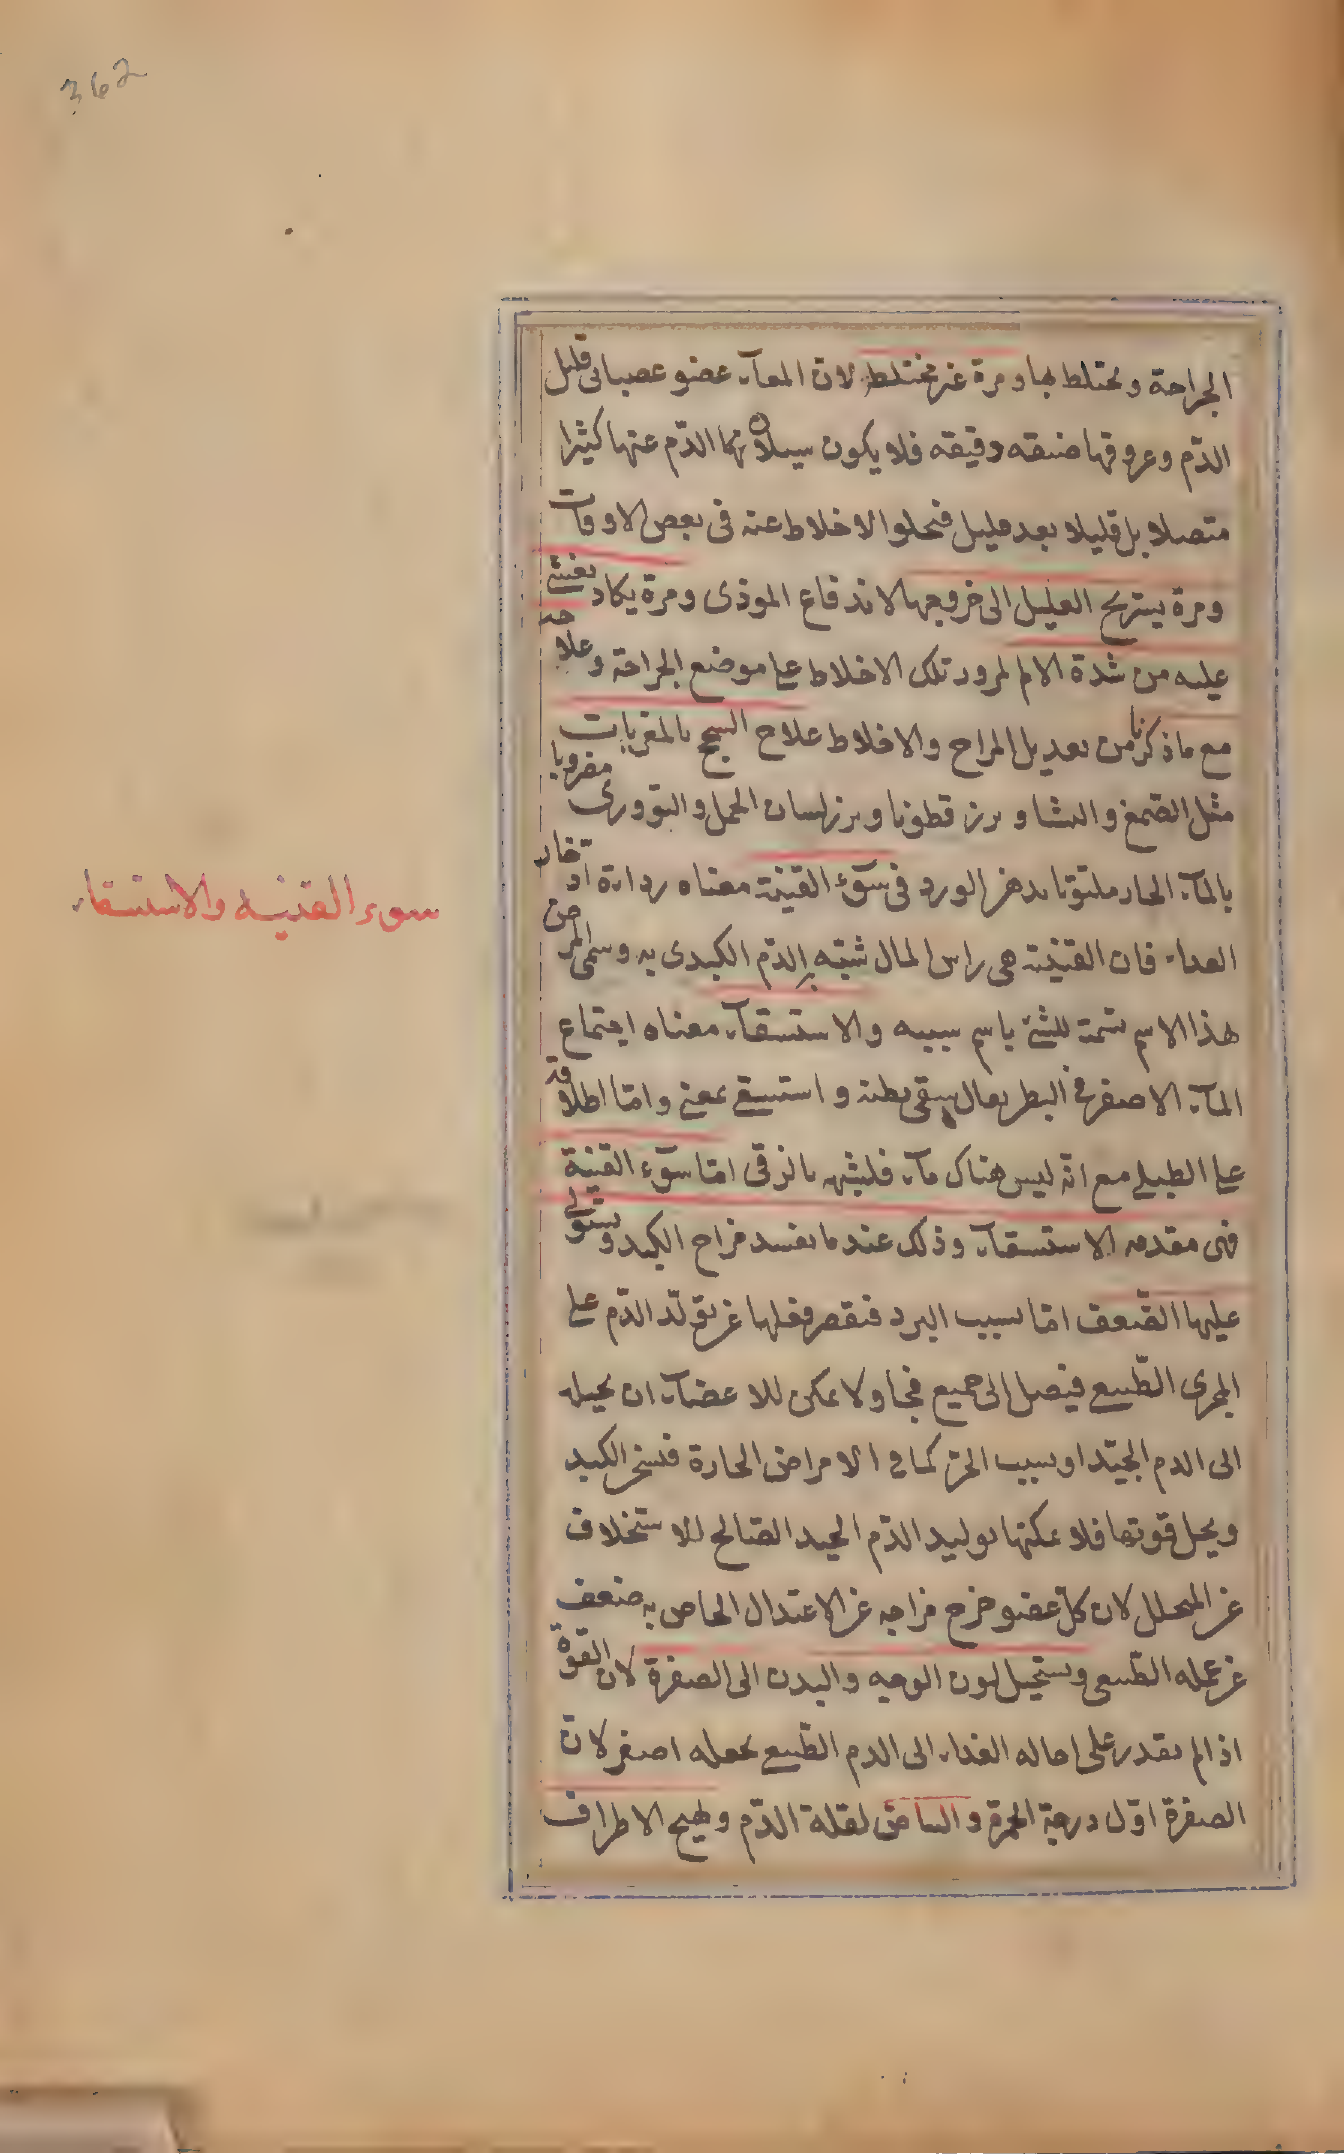 362
الجراحة ويختلط بها ومرة غير مختلط لان المعآء عضو عصبانى قليل
الدّم وعروقها ضيقه دقيقه فلا يكون سيلان الدّم عنها كثيرا
متصلا بل قليلا بعد قليل فتحلوا الاخلاط عنه فى بعض الاوقات
ومرة يستريح العليل الى خروجها لاندفاع الموذى ومرة يكاد يغشى
عليه من شدة الالم لمرور تلك الاخلاط على موضع الجراحة وعلاجه
مع ما ذكرنا من تعديل المزاج والاخلاط علاج السحج بالمغريات
مثل الصّمغ والنشا وبزر قطونا وبزر لسان الحمل والتودرى مضروبا
بالمآء الحار ملتوتا بدهن الورد فى سوٓء القينة معناه رداءة ادخار
الغداء فان القنية هى راس المال شبّه الدّم الكبدى به وسمى المرض
هذا الاسم تسمية للشئ باسم سببه والاستسقآء معناه اجتماع
المآء الاصفر فى البطن يقال سقى بطنه واستسقى بمعنى وامّا اطلاقه
على الطبلى مع انّه ليس هناك مآء فلشبهه بالزقى امّا سوٓء القنية
فهى مقدمه الاستسقآء وذلك عندما يفسد مزاج الكبد ويستولى
عليها الضّعف امّا بسبب البرد فنقص فعلها عن تولّد الدّم على
المجرى الطّبيعى فيصل الى جميع فجا ولا يمكن للاعضآء ان تحيله
الى الدم الجيّد او بسبب الحرّ كما فى الامراض الحارة فتسخن الكبد
ويحل قوتها فلا يمكنها توليد الدّم الجيد الصّالح للاستخلاف
عن المتحلل لان كلّ عضو خرج مزاجه عن الاعتدال الخاص به ضعف
عن عمله الطّبيعى ويستحيل لون الوجه والبدن الى الصفرة لان القوّة
اذا لم تقدر على احاله الغداء الى الدم الطّبيعى يجعله اصفر لان
الصفرة اوّل درجة الحمرة والبياض لقلة الدّم وتهيج الاطراف
سوء القنيه والاستسقاء